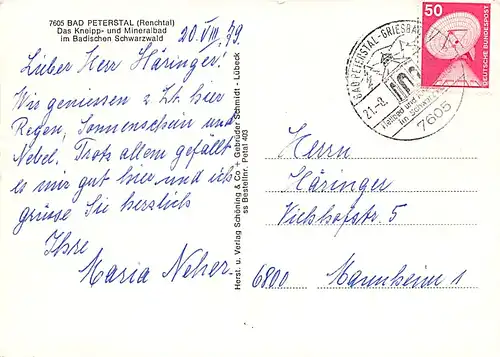 7605 BAD PETERSTAL (Renchtal)
Das Kneipp- und Mineralbad
im Badischen Schwarzwald
20. VIII. 79
Lieber Herr Häringer!
Wir geniessen z. Zt. hier
Regen, Sonnenschein und
Nebel. Trotz allem gefällt
es mir gut hier und ich
grüsse Sie herzlich
Ihre
Maria Neher
Herst. u. Verlag Schöning & Co + Gebrüder Schmidt · Lübeck
ss Bestellnr. Petal 403
BAD PETERSTAL-GRIESBACH
21.-8.
Heilbad und
im Schwarzwald
7605
50
DEUTSCHE BUNDESPOST
Herrn
Häringer
Viehhofstr. 5
6800 Mannheim 1